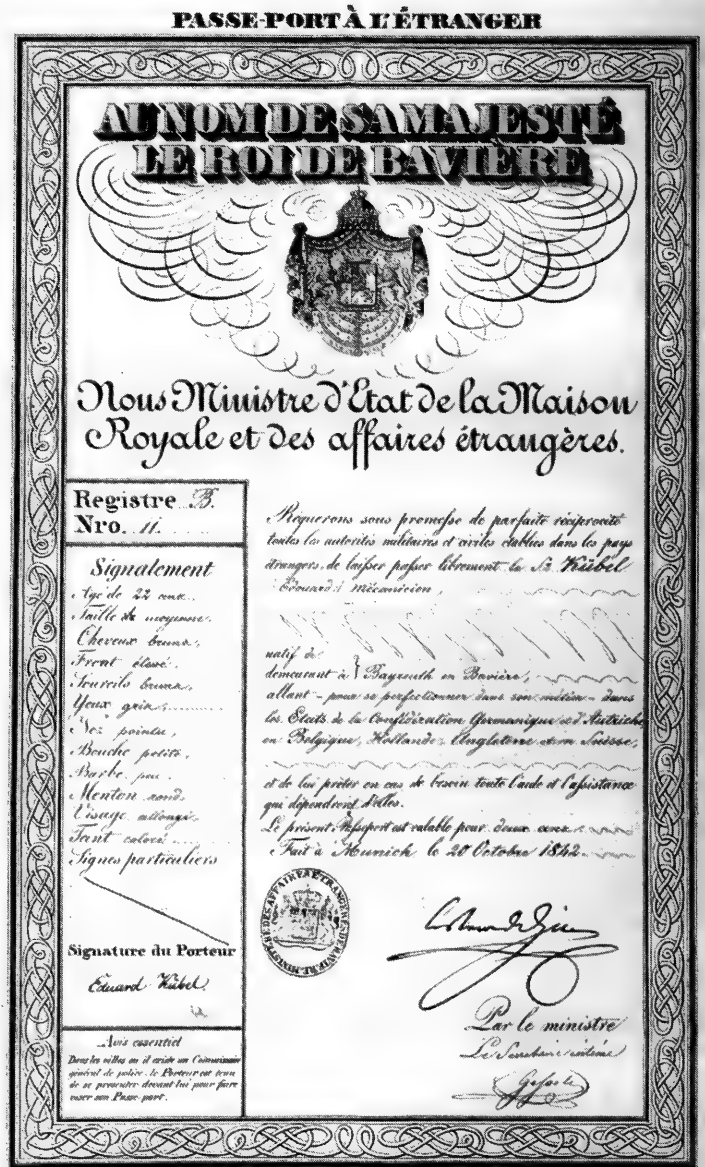 PASSE-PORT À L'ÉTRANGER
AU NOM DE SA MAJESTÉ
LE ROI DE BAVIÈRE
Nous Ministre d'Etat de la Maison
Royale et des affaires étrangères.
Registre B.
Nro. 11.
Signalement
Agé de 22 ans.
Taille de moyenne.
Cheveux bruns.
Front élevé.
Sourcils bruns.
Yeux gris
Nez pointu,
Bouche petite,
Barbe
Menton rond.
Visage allongé.
Teint coloré
Signes particuliers
Signature du Porteur
Eduard Kübel
Avis essentiel
Dans les villes ou il existe un Commissaire
général de police, le Porteur est tenu
de se presenter devant lui pour faire
viser son Passe-port.
Requerons sous promesse de parfaite réciprocité
toutes les autorités militaires et civiles établies dans les pays
étrangers, de laisser passer librement le Sr. Kübel
Edouard, mécanicien,
natif de
demeurant à } Bayreuth en Bavière,
allant - pour se perfectionner dans son métier - dans
les Etats de la Confédération Germanique et d'Autriche,
en Belgique, Hollande, Angleterre et en Suisse,
et de lui prêter en cas de besoin toute l'aide et l'assistance
qui dépendront d'elles.
Le présent Passeport est valable pour deux ans
Fait à Munich le 20 Octobre 1842
MINISTÈRE DES AFFAIRES ÉTRANGÈRES
Par le ministre
Le Secrétaire intime